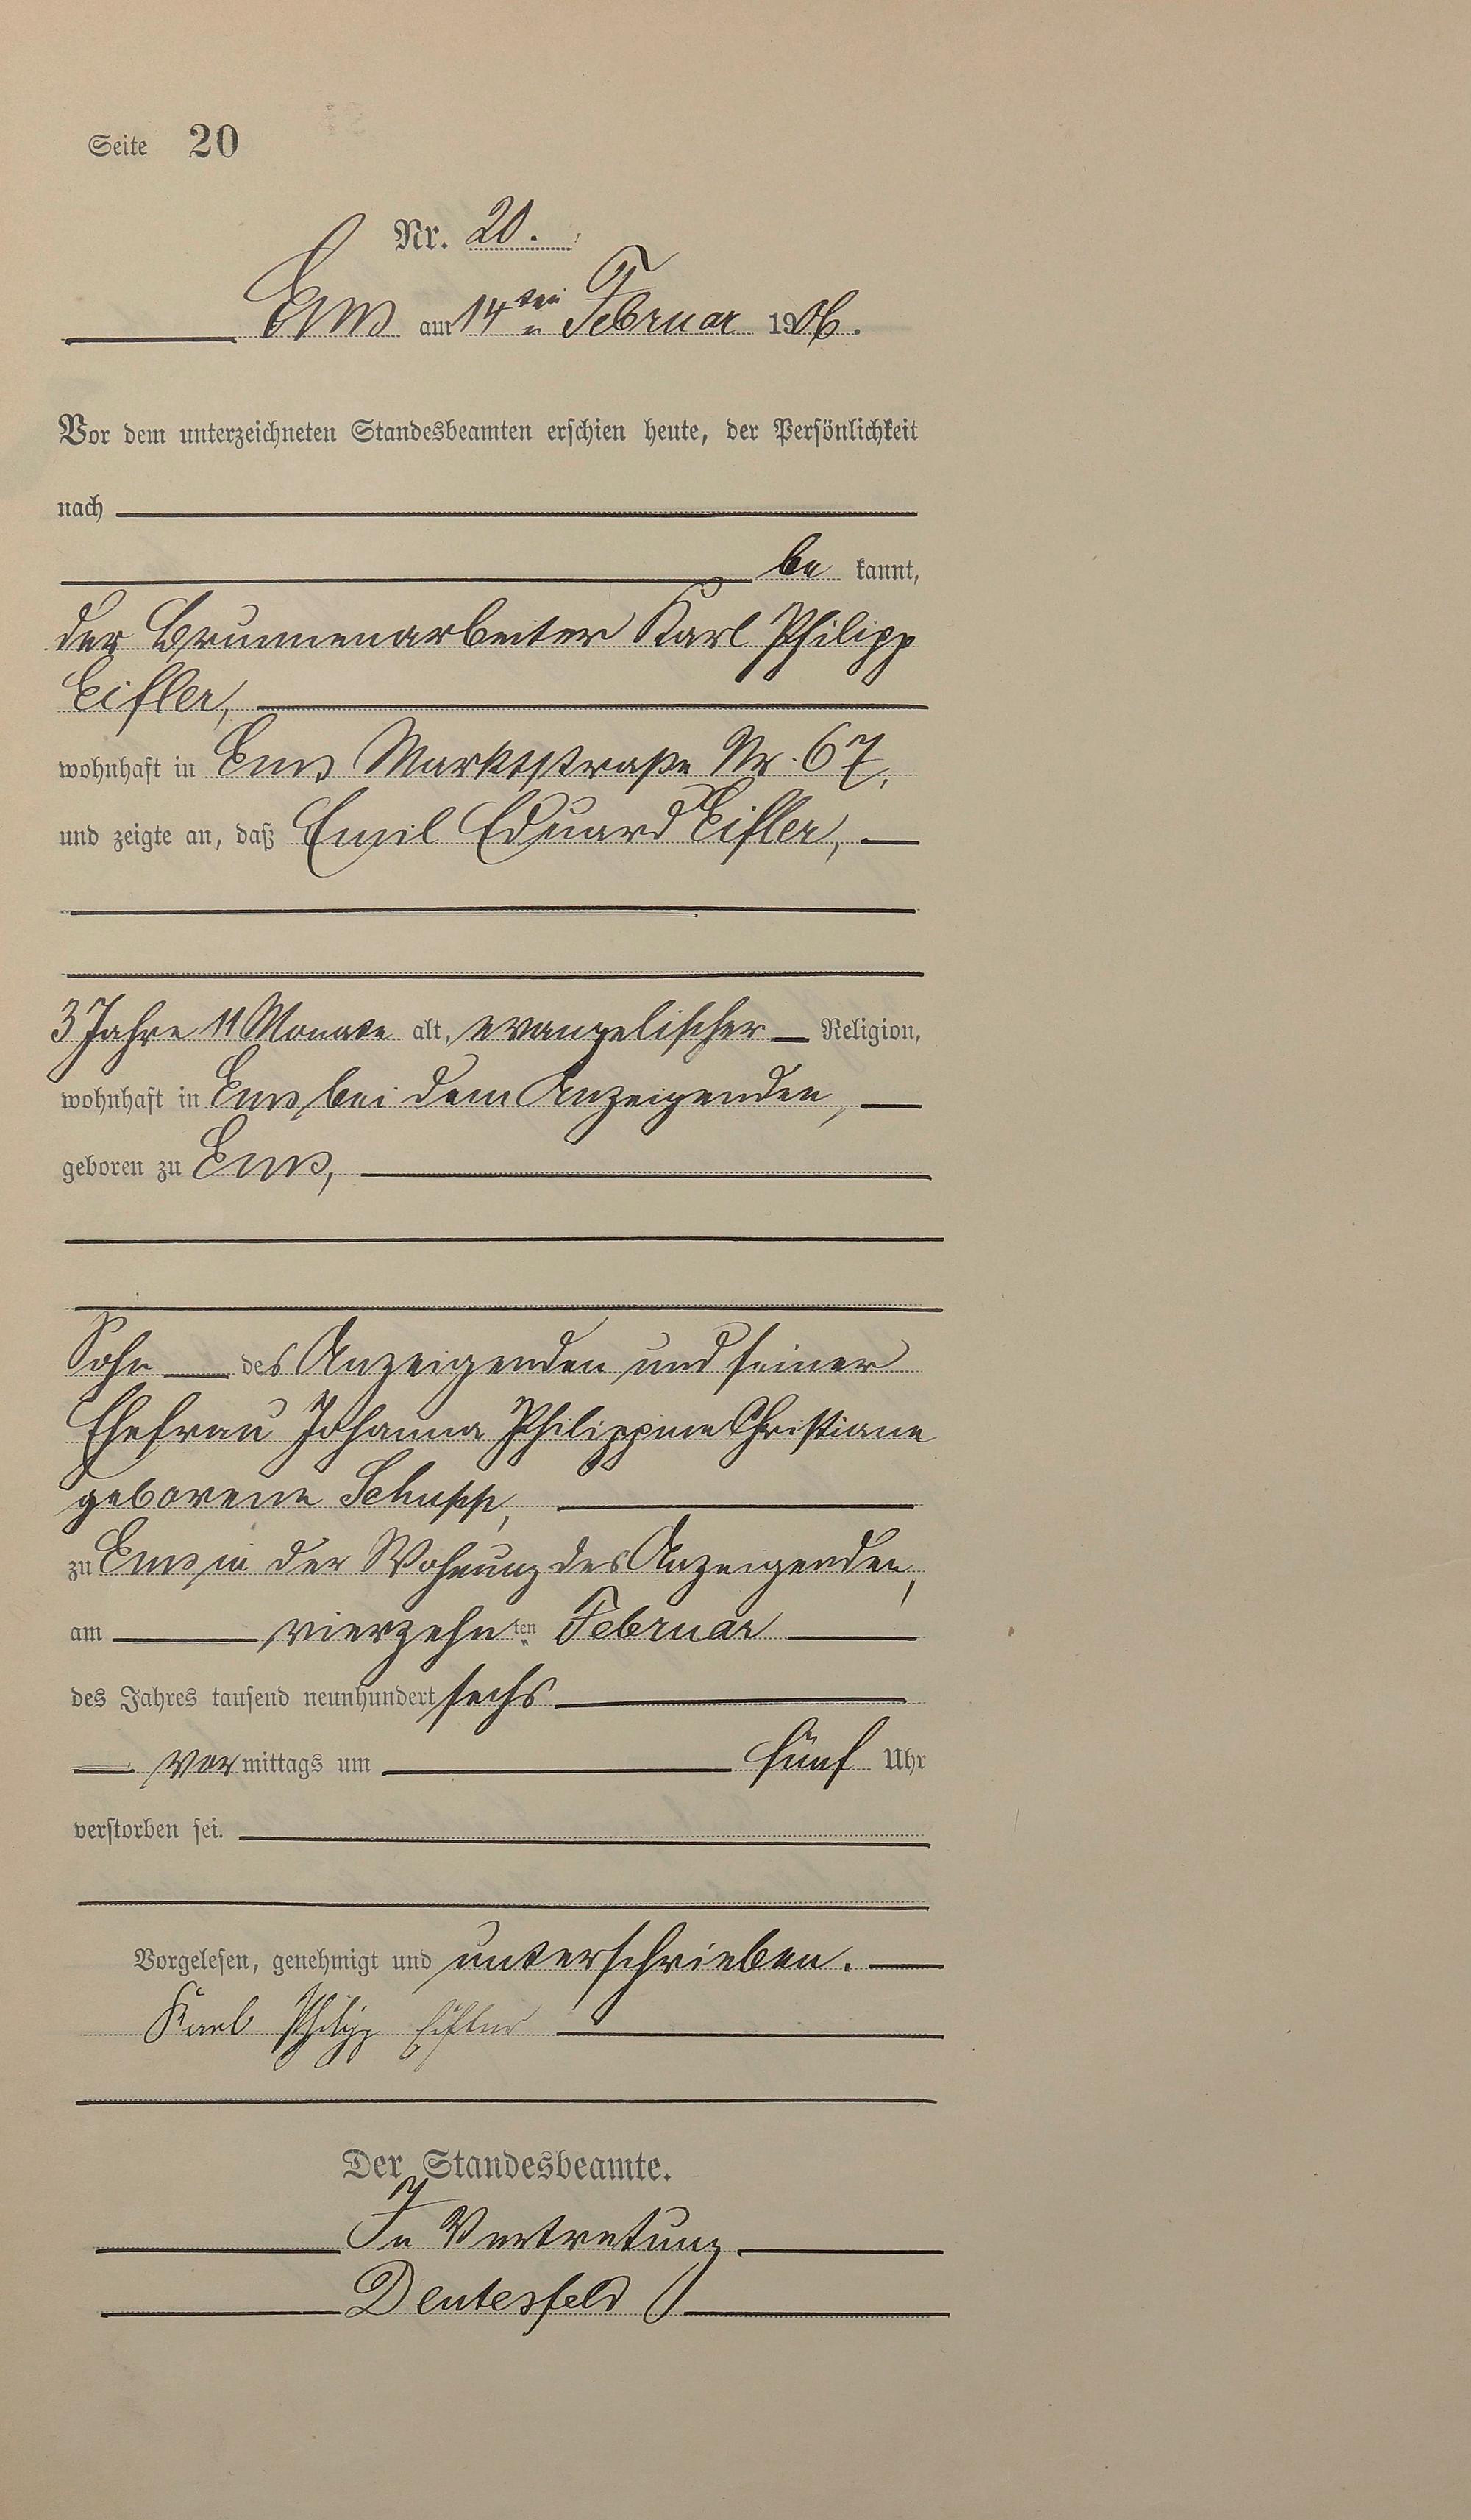 Seite 20
Nr. 20.
Ems am 14ten Februar 1906.
Vor dem unterzeichneten Standesbeamten erschien heute, der Persönlichkeit
nach
be kannt,
der Brunnenarbeiter Karl Philipp
Eifler,
wohnhaft in Ems Marktstraße Nr. 67,
und zeigte an, daß Emil Eduard Eifler,
3 Jahre 11 Monate alt, evangelischer Religion,
wohnhaft in Ems bei dem Anzeigenden,
geboren zu Ems,
Sohn des Anzeigenden und seiner
Ehefrau Johanna Philippine Christiane
geborene Schupp,
zu Ems in der Wohnung des Anzeigenden,
am vierzehnten Februar
des Jahres tausend neunhundert sechs
vormittags um fünf Uhr
verstorben sei.
Vorgelesen, genehmigt und unterschrieben.
Karl Philipp Eifler
Der Standesbeamte.
In Vertretung
Deutesfeld